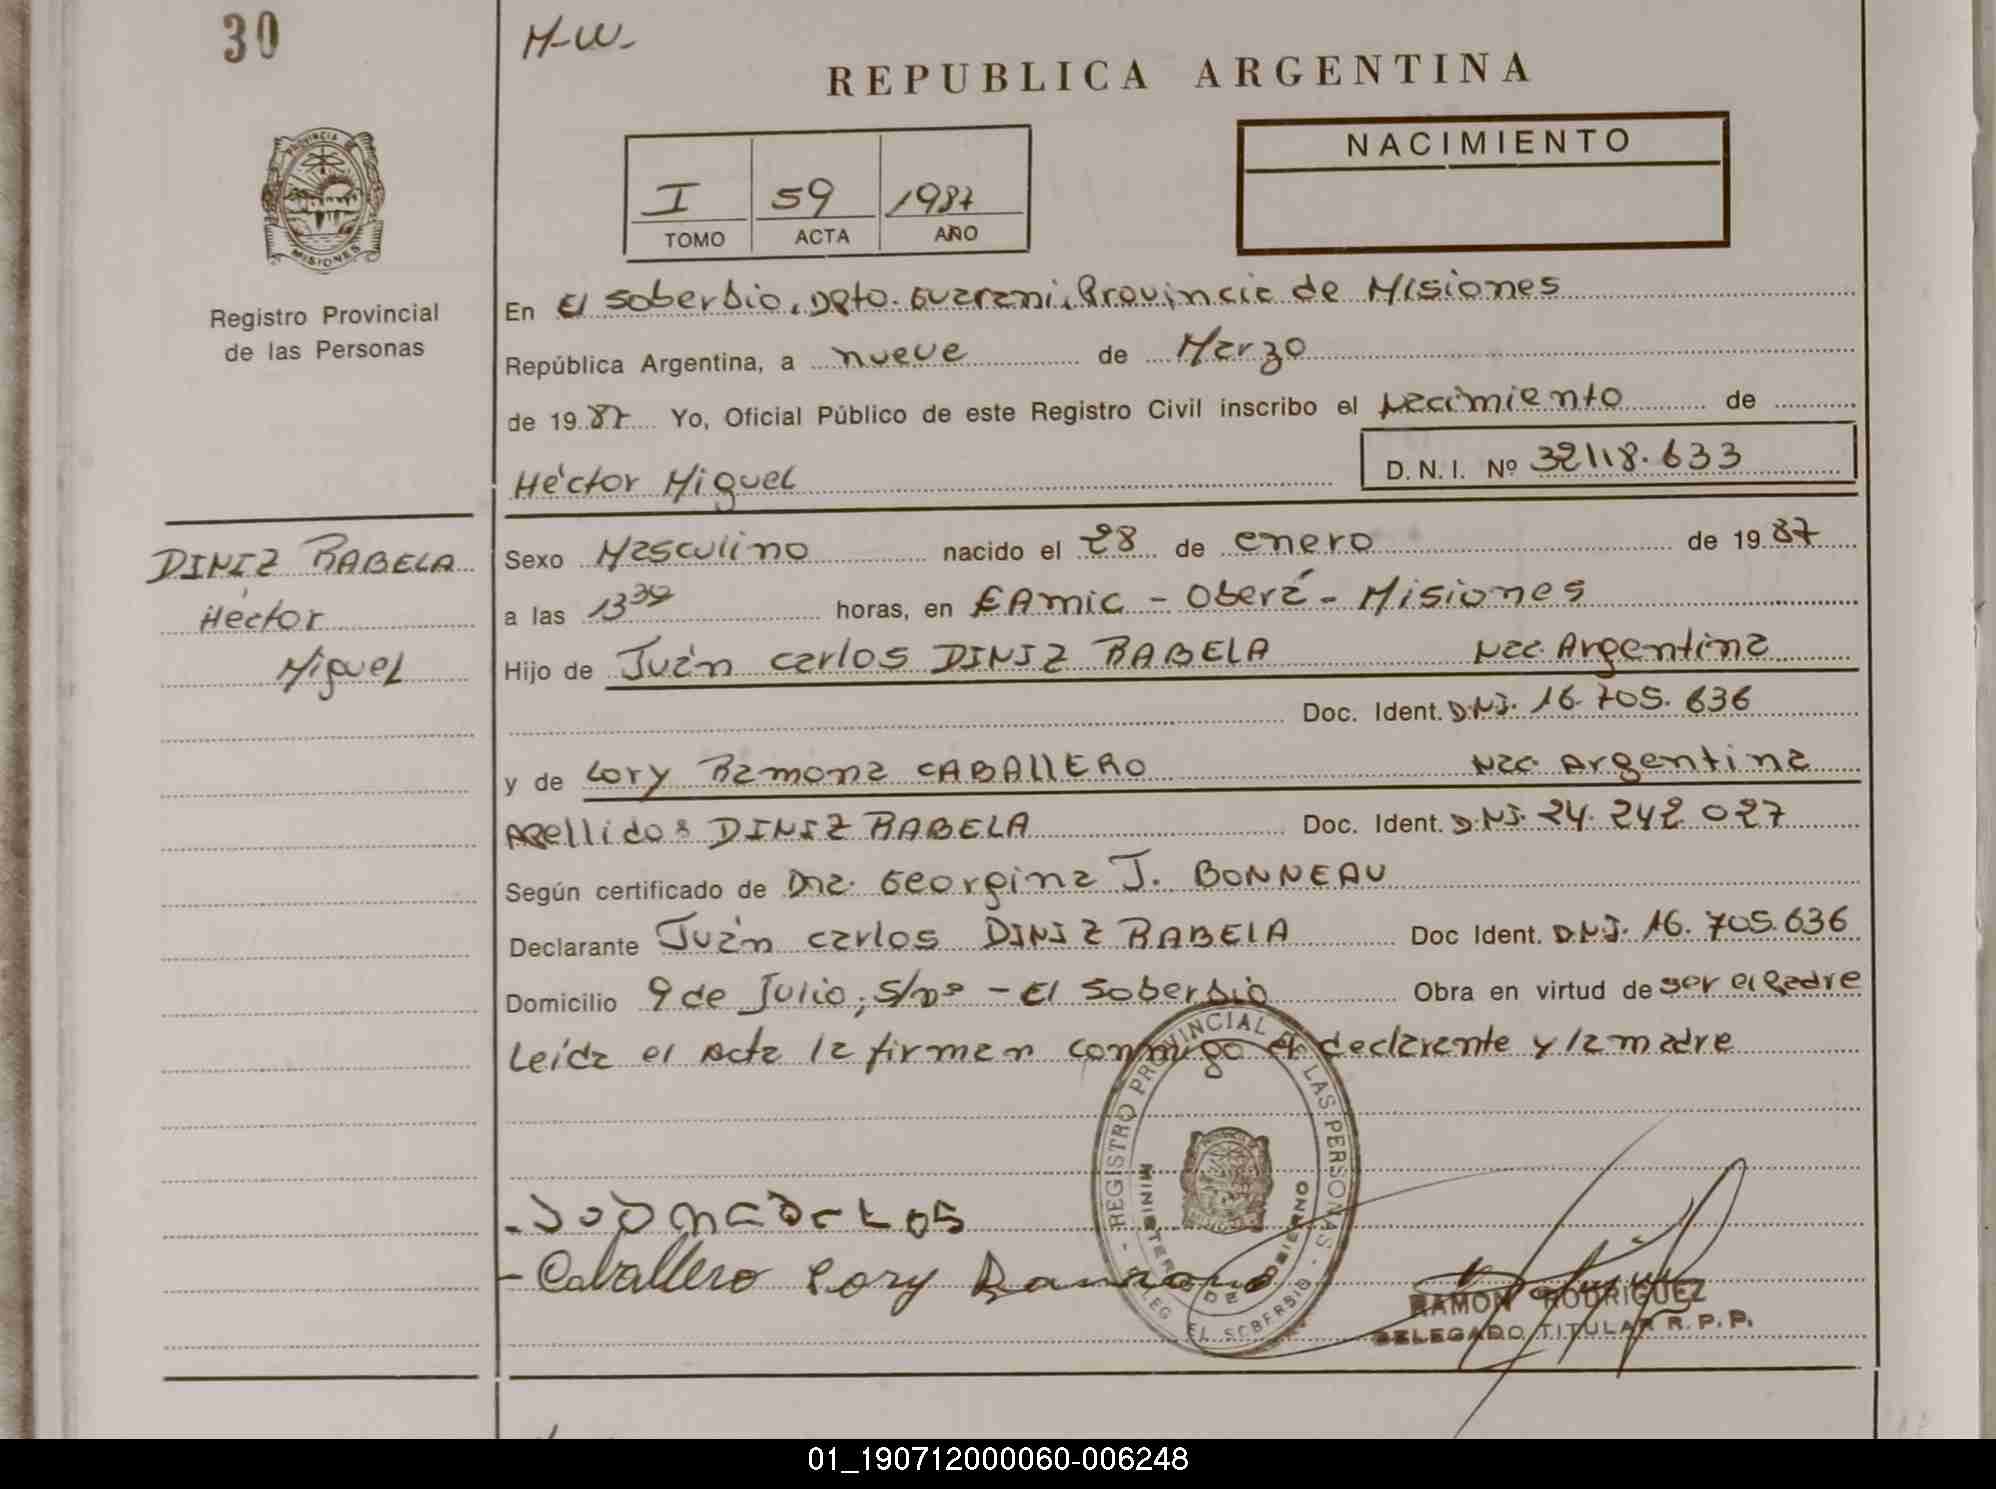 30
H-W-
REPUBLICA ARGENTINA
PROVINCIA
MISIONES
Registro Provincial
de las Personas
I 59 1987
TOMO ACTA AÑO
NACIMIENTO
En El Soberbio, Dpto. Guarani, Provincia de Misiones
República Argentina, a nueve de Marzo
de 1987 Yo, Oficial Público de este Registro Civil inscribo el Nacimiento de
Héctor Miguel D.N.I. Nº 32118.633
DINIZ RABELA
Héctor
Miguel
Sexo Masculino nacido el 28 de enero de 1987
a las 13 30 horas, en EAMIC - Oberá - Misiones
Hijo de Juán Carlos DINIZ RABELA Nac. Argentina
Doc. Ident. D.N.I. 16.705.636
y de Lory Ramona CABALLERO Nac. Argentina
Apellido: DINIZ RABELA Doc. Ident. D.N.I. 24.242.027
Según certificado de Dra. Georgina J. BONNEAU
Declarante Juán Carlos DINIZ RABELA Doc Ident. D.N.I. 16.705.636
Domicilio 9 de Julio, s/nº - El Soberbio Obra en virtud de ser el Padre
Leída el Acta la firman conmigo el declarante y la madre
- REGISTRO PROVINCIAL DE LAS PERSONAS -
MINISTERIO DE GOBIERNO
DELEG. EL SOBERBIO
- Caballero Lory Ramona
RAMON RODRIGUEZ
DELEGADO TITULAR R.P.P.
01_190712000060-006248